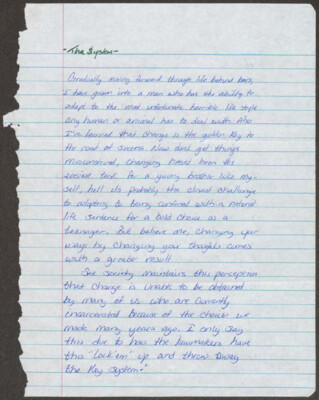 -The System-
Gradually moving forward through life behind bars,
I have grown into a man who has the ability to
adapt to the most unfortunate, horrible life style
any human or animal has to deal with. Also
I've learned that change is the golden key to
the road of success. Now dont get things
misconstrued, changing hasnt been the
easiest task for a young brotha like my-
self, hell its probably the closest challenge
to adapting to being confined within a natural
life sentence for a bad choice as a
teenager. But believe me, changing your
ways by changing your thoughts comes
with a greater result.
See society maintains this perception
that change is unable to be obtained
by many of us who are currently
incarcerated because of the choices we
made many years ago. I only say
this due to how the lawmakers have
this "Lock'em' up and throw away
the Key System."